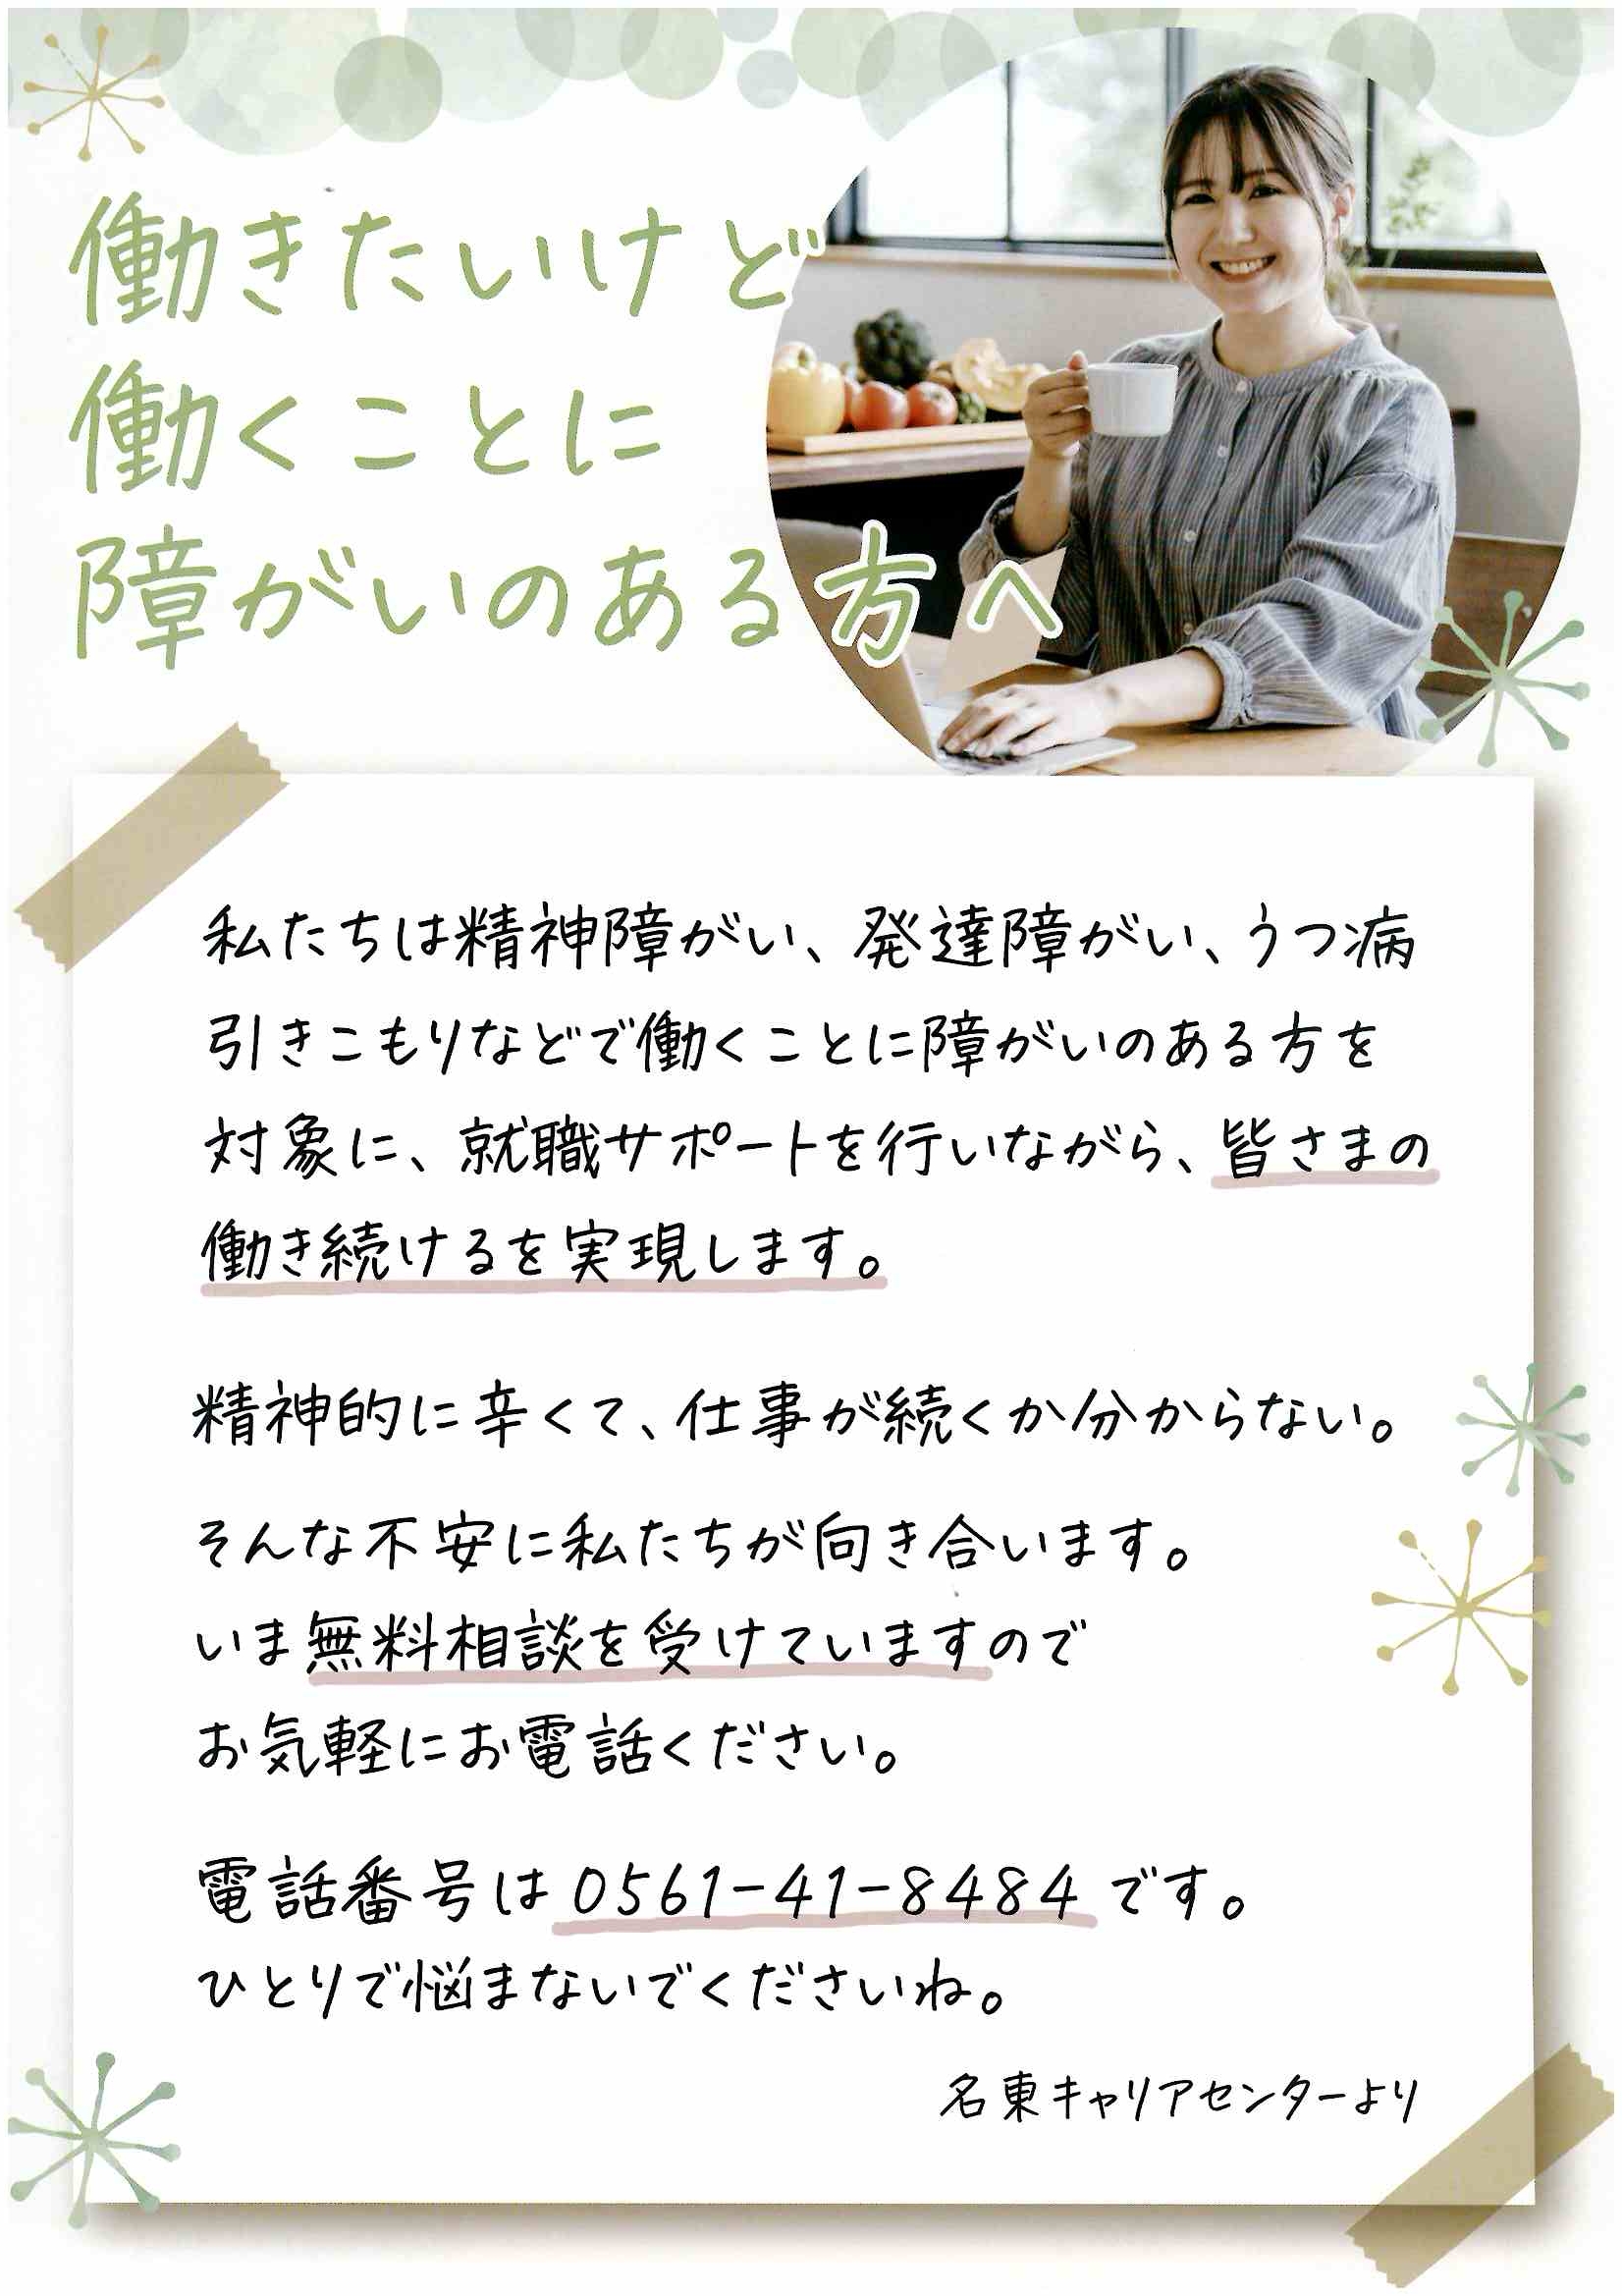 働きたいけど
働くことに
障がいのある方へ
私たちは精神障がい、発達障がい、うつ病
引きこもりなどで働くことに障がいのある方を
対象に、就職サポートを行いながら、皆さまの
働き続けるを実現します。
精神的に辛くて、仕事が続くか分からない。
そんな不安に私たちが向き合います。
いま無料相談を受けていますので
お気軽にお電話ください。
電話番号は0561-41-8484です。
ひとりで悩まないでくださいね。
名東キャリアセンターより